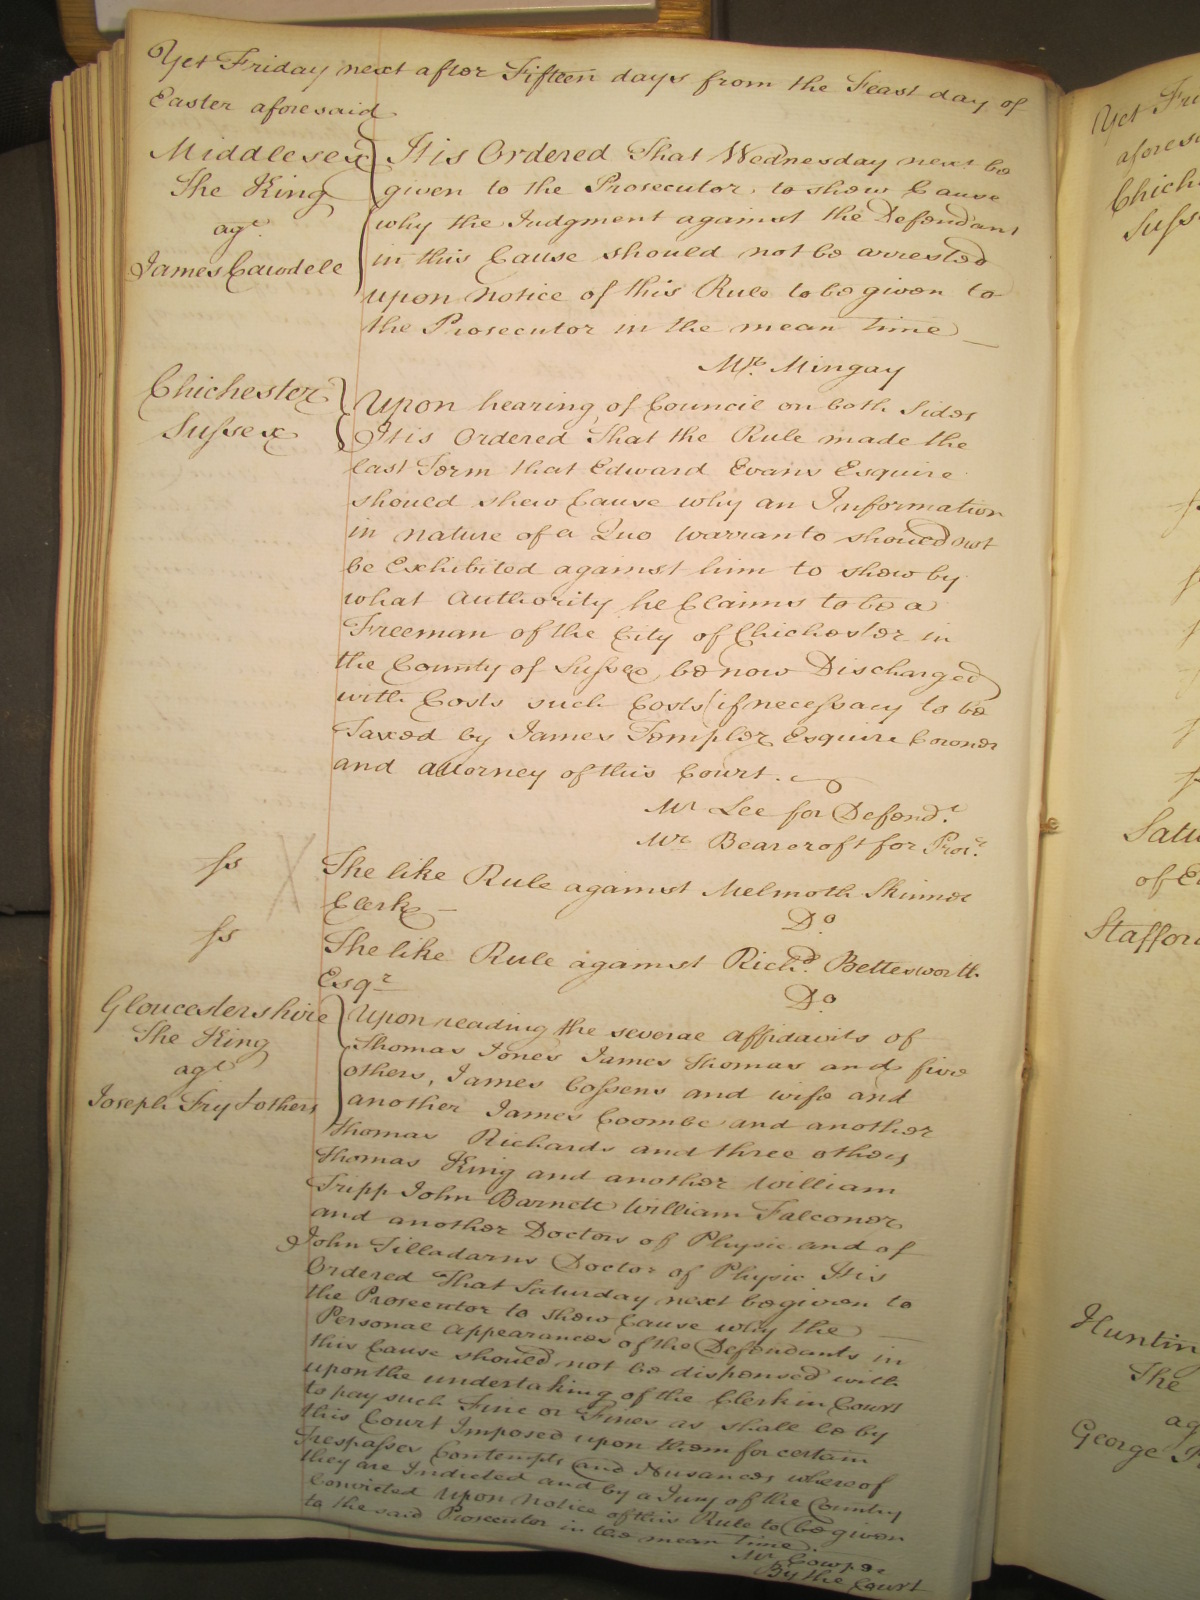 Yet Friday next after Fifteen days from the Feast day of
Easter aforesaid
Middlesex
The King
agt.
James Cawdele
It is Ordered That Wednesday next be
given to the Prosecutor to shew Cause
why the Judgment against the Defendant
in this Cause should not be arrested
upon notice of this Rule to be given to
the Prosecutor in the mean time
Mr. Mingay
Chichester
Sussex
Upon hearing of Council on both Sides
It is Ordered That the Rule made the
last Term that Edward Evans Esquire
should shew Cause why an Information
in nature of a Quo Warranto should not
be Exhibited against him to shew by
what Authority he Claims to be a
Freeman of the City of Chichester in
the County of Sussex, be now Discharged
with Costs such Costs if necessary to be
Taxed by James Templer Esquire Coroner
and Attorney of this Court.
Mr Lee for Defend.t
Mr Bearcroft for Pros.r
ss
The like Rule against Melmoth Skinner
Clerk
Do.
ss
The like Rule against Richd. Bettesworth
Esqr
Do.
Gloucestershire
The King
agt
Joseph Fry & others
Upon reading the several affidavits of
Thomas Jones James Thomas and five
others, James Cossens and wife and
another James Coombe and another
Thomas Richards and three others
Thomas King and another William
Tripp John Barnett William Falconer
and another Doctors of Physic and of
John Tilladams Doctor of Physic It is
Ordered That Saturday next be given to
the Prosecutor to shew Cause why the
Personal Appearances of the Defendants in
this Cause should not be dispensed with
upon the undertaking of the Clerk in Court
to pay such Fine or Fines as shall be by
this Court Imposed upon them for certain
Trespasses Contempts and Nusances whereof
they are Indicted and by a Jury of the Country
Convicted upon notice of this Rule to be given
to the said Prosecutor in the mean time.
Mr Cowper
By the Court
Yet Fri
afores
Chich
Suss
Satu
of Ea
Stafford
Hunting
The
ag
George